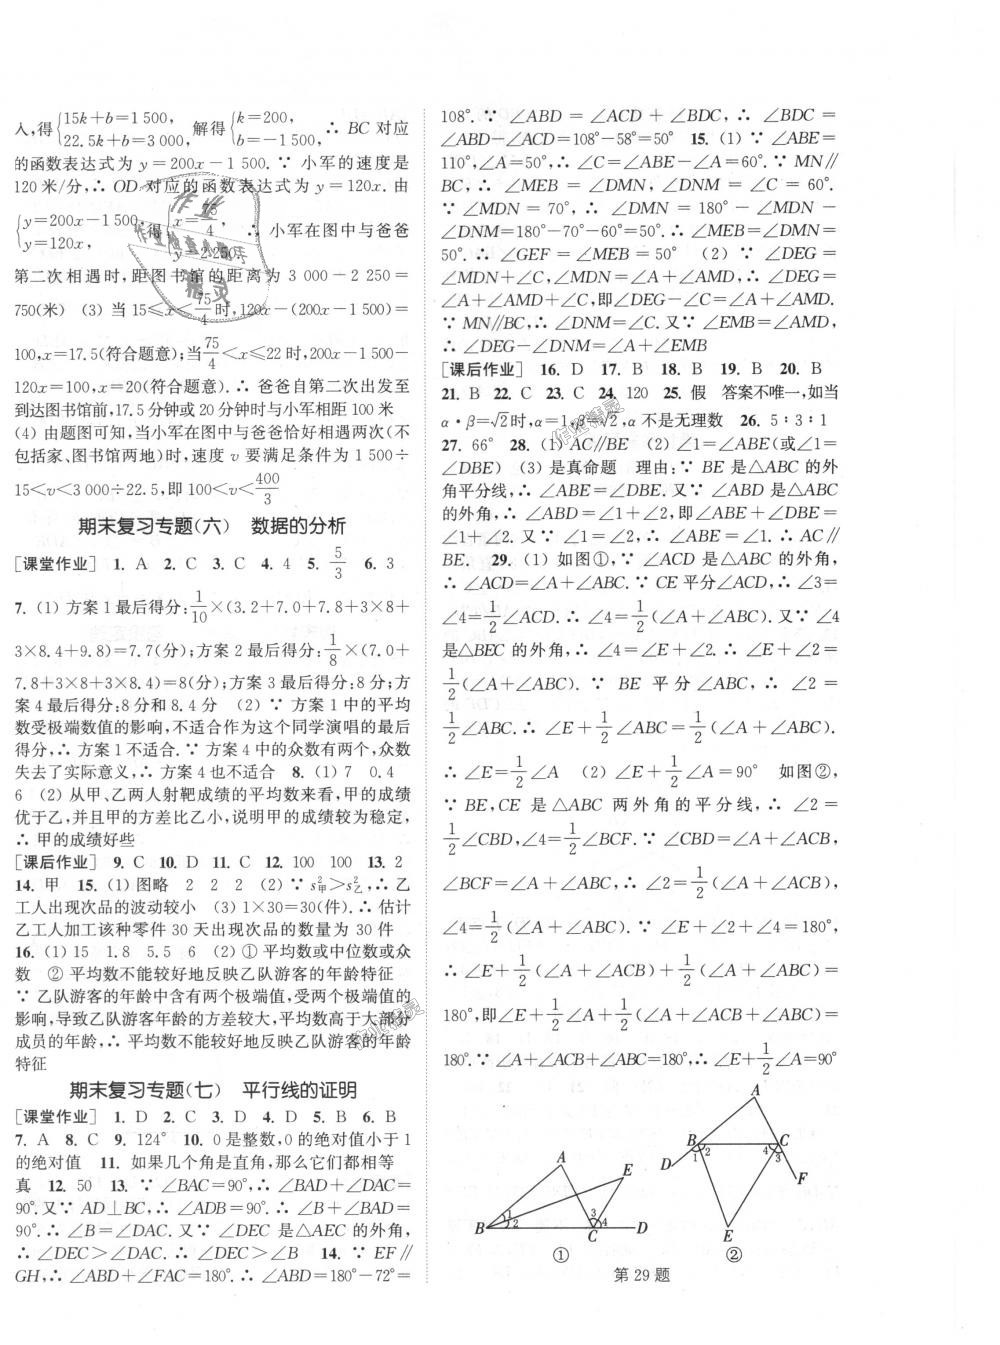 入,得{15k+b=1 500, 22.5k+b=3 000, 解得{k=200, b=-1 500, ∴ BC 对应
的函数表达式为 y=200x-1 500.∵ 小军的速度是
120 米/分,∴ OD 对应的函数表达式为 y=120x. 由
{y=200x-1 500, y=120x, 得{x=75/4, y=2 250, ∴ 小军在图中与爸爸
第二次相遇时,距图书馆的距离为 3 000-2 250=
750(米) (3) 当 15≤x<75/4时,120x-(200x-1 500)=
100,x=17.5(符合题意);当75/4<x≤22 时,200x-1 500-
120x=100,x=20(符合题意).∴ 爸爸自第二次出发至
到达图书馆前,17.5 分钟或 20 分钟时与小军相距 100 米
(4) 由题图可知,当小军在图中与爸爸恰好相遇两次(不
包括家、图书馆两地)时,速度 v 要满足条件为 1 500÷
15<v<3 000÷22.5,即 100<v<400/3
期末复习专题(六) 数据的分析
[课堂作业] 1. A 2. C 3. C 4. 4 5. 5/3 6. 3
7. (1) 方案 1 最后得分:1/10×(3.2+7.0+7.8+3×8+
3×8.4+9.8)=7.7(分);方案 2 最后得分:1/8×(7.0+
7.8+3×8+3×8.4)=8(分);方案 3 最后得分:8 分;方案
方案 4 最后得分:8 分和 8.4 分 (2) ∵ 方案 1 中的平均
数受极端数值的影响,不适合作为这个同学演唱的最后
得分,∴ 方案 1 不适合.∵ 方案 4 中的众数有两个,众数
失去了实际意义,∴ 方案 4 也不适合 8. (1) 7 0.4
6 (2) 从甲、乙两人射靶成绩的平均数来看,甲的成绩
优于乙,并且甲的方差比乙小,说明甲的成绩较为稳定,
∴ 甲的成绩好些
[课后作业] 9. C 10. D 11. C 12. 100 100 13. 2
14. 甲 15. (1) 图略 2 2 2 (2) ∵ s²甲>s²乙,∴ 乙
工人出现次品的波动较小 (3) 1×30=30(件).∴ 估计
乙工人加工该种零件 30 天出现次品的数量为 30 件
16. (1) 15 1.8 5.5 6 (2) ① 平均数或中位数或众
数 ② 平均数不能较好地反映乙队游客的年龄特征
∵ 乙队游客的年龄中含有两个极端值,受两个极端值的
影响,导致乙队游客年龄的方差较大,平均数高于大部分
成员的年龄,∴ 平均数不能较好地反映乙队游客的年龄
特征
期末复习专题(七) 平行线的证明
[课堂作业] 1. D 2. C 3. D 4. D 5. B 6. B
7. A 8. C 9. 124° 10. 0 是整数,0 的绝对值小于 1
的绝对值 11. 如果几个角是直角,那么它们都相等
真 12. 50 13. ∵ ∠BAC=90°,∴ ∠BAD+∠DAC=
90°.又∵ AD⊥BC,∴ ∠ADB=90°.∴ ∠B+∠BAD=
90°.∴ ∠B=∠DAC.又∵ ∠DEC 是△AEC 的外角,
∴ ∠DEC>∠DAC.∴ ∠DEC>∠B 14. ∵ EF∥
GH,∴ ∠ABD+∠FAC=180°.∴ ∠ABD=180°-72°=
108°.∵ ∠ABD = ∠ACD + ∠BDC, ∴ ∠BDC =
∠ABD-∠ACD=108°-58°=50° 15. (1) ∵ ∠ABE=
110°,∠A=50°,∴ ∠C=∠ABE-∠A=60°.∵ MN∥
BC,∴ ∠MEB = ∠DMN, ∠DNM = ∠C = 60°.
∵ ∠MDN = 70°, ∴ ∠DMN = 180° - ∠MDN -
∠DNM=180°-70°-60°=50°.∴ ∠MEB=∠DMN=
50°.∴ ∠GEF = ∠MEB = 50° (2) ∵ ∠DEG =
∠MDN+∠C,∠MDN=∠A+∠AMD,∴ ∠DEG=
∠A+∠AMD+∠C,即∠DEG-∠C=∠A+∠AMD.
∵ MN∥BC,∴ ∠DNM=∠C.又∵ ∠EMB=∠AMD,
∴ ∠DEG-∠DNM=∠A+∠EMB
[课后作业] 16. D 17. B 18. B 19. B 20. B
21. B 22. C 23. C 24. 120 25. 假 答案不唯一,如当
α·β=√2时,α=1,β=√2,α 不是无理数 26. 5∶3∶1
27. 66° 28. (1) AC∥BE (2) ∠1=∠ABE(或∠1=
∠DBE) (3) 是真命题 理由:∵ BE 是△ABC 的外
角平分线,∴ ∠ABE=∠DBE.又∵ ∠ABD 是△ABC
的外角,∴ ∠ABD=∠1+∠2,即∠ABE+∠DBE=
∠1+∠2.又∵ ∠1=∠2,∴ ∠ABE=∠1.∴ AC∥
BE. 29. (1) 如图①,∵ ∠ACD 是△ABC 的外角,
∴ ∠ACD=∠A+∠ABC.∵ CE 平分∠ACD,∴ ∠3=
∠4=1/2∠ACD.∴ ∠4=1/2(∠A+∠ABC).又∵ ∠4
是△BEC 的外角,∴ ∠4=∠E+∠2.∴ ∠E+∠2=
1/2(∠A+∠ABC).∵ BE 平分∠ABC,∴ ∠2=
1/2∠ABC.∴ ∠E+1/2∠ABC=1/2(∠A+∠ABC).
∴ ∠E=1/2∠A (2) ∠E+1/2∠A=90° 如图②,
∵ BE,CE 是△ABC 两外角的平分线,∴ ∠2=
1/2∠CBD,∠4=1/2∠BCF.∵ ∠CBD=∠A+∠ACB,
∠BCF=∠A+∠ABC,∴ ∠2=1/2(∠A+∠ACB),
∠4=1/2(∠A+∠ABC).∵ ∠E+∠2+∠4=180°,
∴ ∠E+1/2(∠A+∠ACB)+1/2(∠A+∠ABC)=
180°,即∠E+1/2∠A+1/2(∠A+∠ACB+∠ABC)=
180°.∵ ∠A+∠ACB+∠ABC=180°,∴ ∠E+1/2∠A=90°
A E 1 2 B 3 4 C D
①
A B C 1 2 4 3 D F E
②
第 29 题
作业
作业检查小帮手
精灵
作业精灵
作业精灵